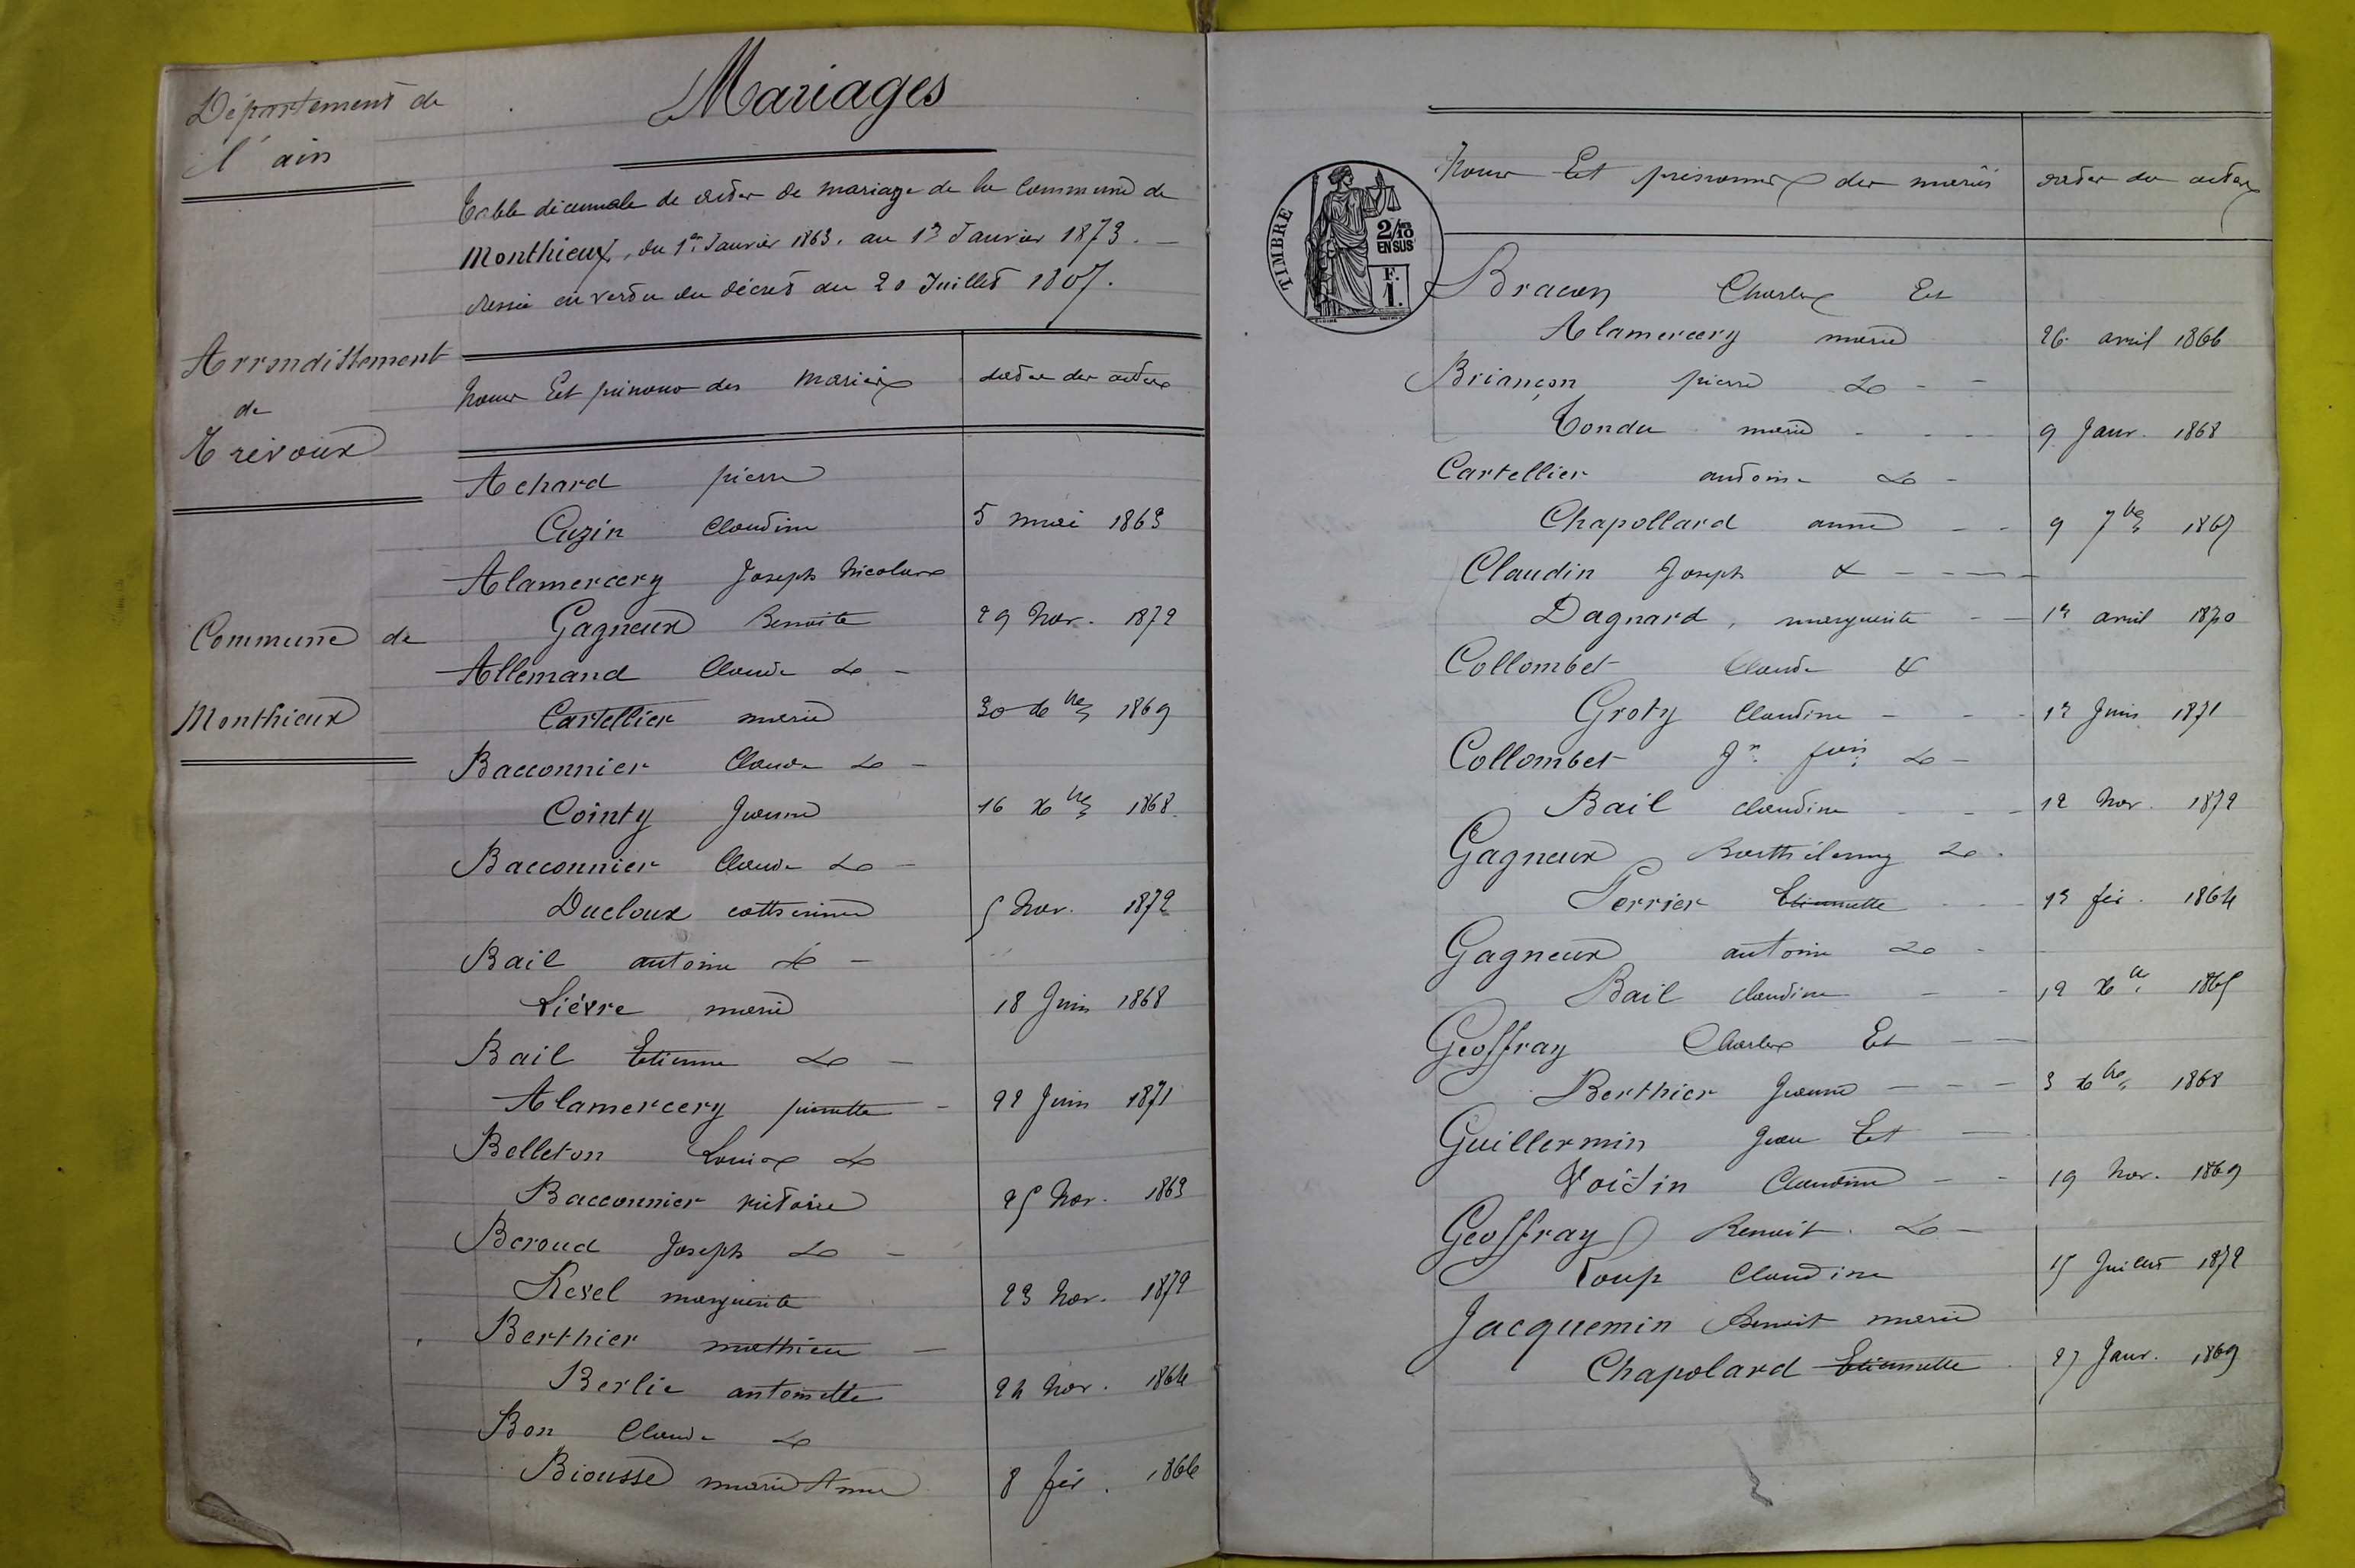 Département de
l'ain
Arrondissement
de
Trévoux
Commune de
Monthieux
Mariages
Table décennale de actes de mariage de la Commune de
Monthieux, du 1er Janvier 1863. au 1er Janvier 1873. —
dressée en vertu du décret du 20 Juillet 1807.
Noms Et prénoms des mariés dates des actes
Achard pierre
Cuzin Claudine 5 mai 1863
Alamercery Joseph Nicolas
Gagneux Benoite 29 Nov. 1872
Allemand Claude & —
Cartellier marie 30 xbre 1869
Bacconnier Claude & —
Cointy Jeanne 16 xbre 1868
Bacconnier Claude & —
Ducloux catherine 5 Nov. 1872
Bail antoine & —
Lièvre marie 18 Juin 1868
Bail Etienne & —
Alamercery pierrette — 22 Juin 1871
Belleton Louis &
Bacconnier victoire 25 Nov. 1863
Beroud Joseph & —
Revel marguerite 23 Nov. 1872
Berthier mathieu —
Berlie antoinette 24 Nov. 1864
Bon Claude &
Biousse marie Anne 8 fév. 1866
TIMBRE
2/10 EN SUS
F. 1.
Noms Et prénoms des mariés dates des actes
Bracon Charles Et
Alamercery marie 26 avril 1866
Briançon pierre & — —
Tondu marie - - - 9 Janv. 1868
Cartellier antoine & -
Chapollard anne - - 9 7bre 1867
Claudin Joseph & - - - -
Dagnard, marguerite - - 1er avril 1870
Collombet Claude &
Groty Claudine - - - 1er Juin 1871
Collombet Jn fois &  —
Bail claudine - - - 12 Nov. 1872
Gagneux Barthélemy & -
Perrier Etiennette - - - 1er fév. 1864
Gagneux antoine & -
Bail claudine - - 12 xbre 1865
Geoffray Charles Et - —
Berthier Jeanne - - - 3 xbre 1868
Guillermin Jean Et —
Voisin Claudine - - 19 Nov. 1869
Geoffray Benoit & —
Loup Claudine 15 Juillet 1872
Jacquemin Benoit marie
Chapolard Etiennette 27 Janv. 1869